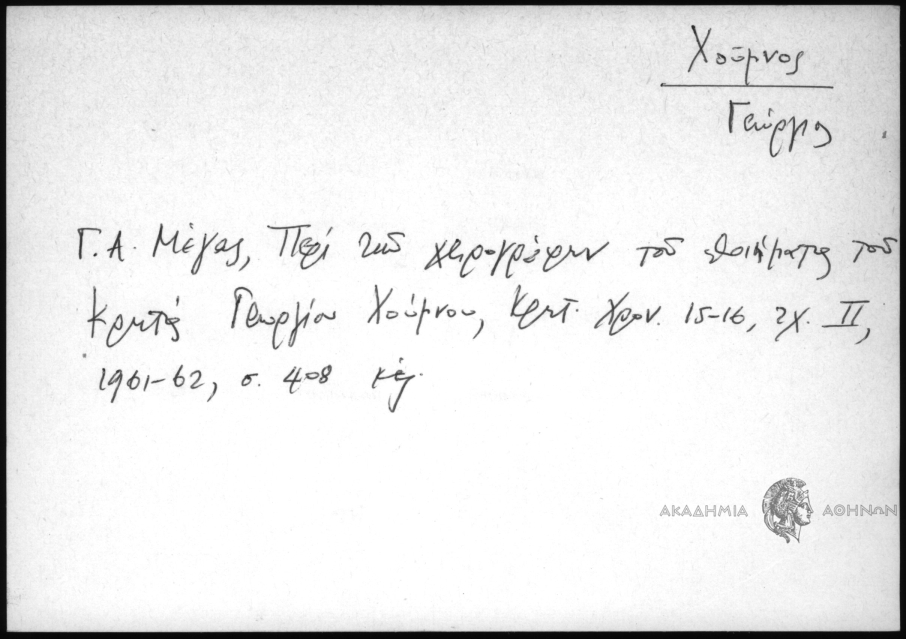 Χοῦμνος
Γεώργιος
Γ. Α. Μέγας, Περὶ τῶν χειρογράφων τοῦ ποιήματος τοῦ
Κρητὸς Γεωργίου Χούμνου, Κρητ. Χρον. 15-16, τχ. II,
1961-62, σ. 408 κἑξ.
ΑΚΑΔΗΜΙΑ ΑΘΗΝΩΝ